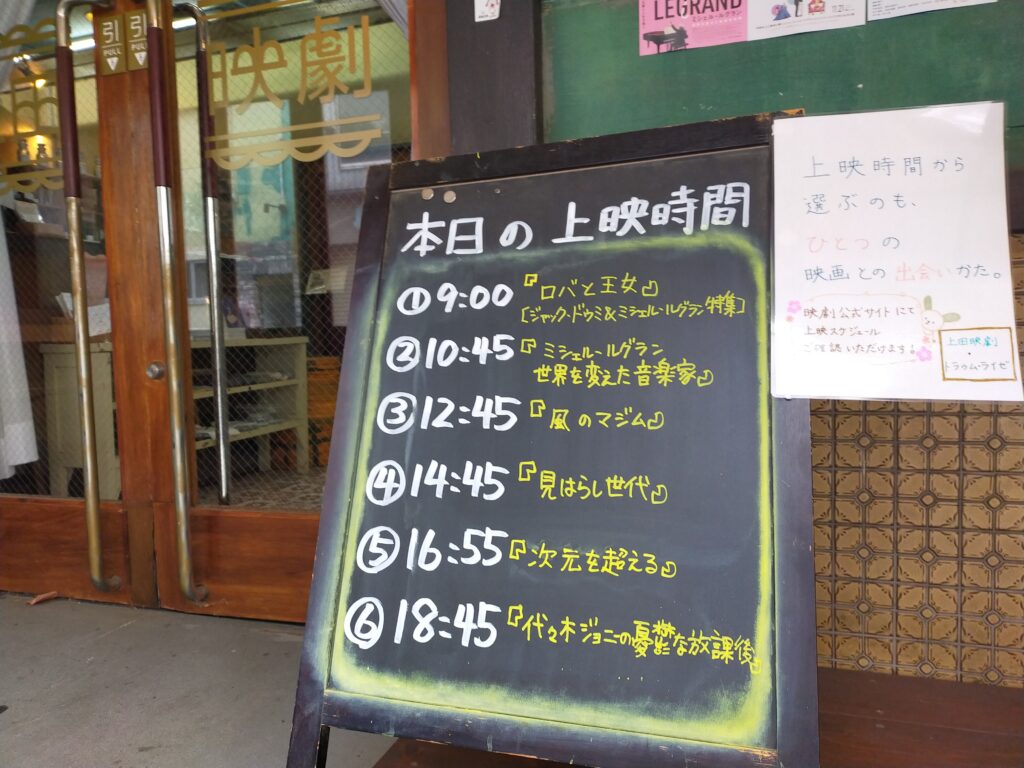 引
PULL
引
PULL
映劇
LEGRAND
ミシェル・ルグラン
本日の上映時間
① 9:00 『ロバと王女』
[ジャック・ドゥミ&ミシェル・ルグラン特集]
② 10:45 『ミシェル・ルグラン
世界を変えた音楽家』
③ 12:45 『風のマジム』
④ 14:45 『見はらし世代』
⑤ 16:55 『次元を超える』
⑥ 18:45 『代々木ジョニーの憂鬱な放課後』
上映時間から
選ぶのも、
ひとつの
映画との出会いかた。
映劇公式サイトにて
上映スケジュール
ご確認いただけます。
上田映劇
・
トラゥム・ライゼ